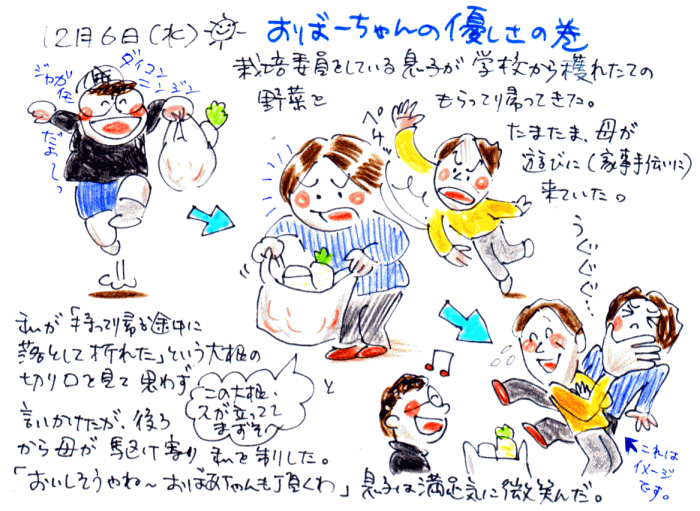 12月6日(水)
おばーちゃんの優しさの巻
栽培委員をしている息子が学校から穫れたての
野菜を もらって帰ってきた。
たまたま、母が
遊びに(家事手伝いに)
来ていた。
ダイコン
ニンジン
ジャガイモ
だよーっ
ペチッ
うぐぐぐ…
私が「持って帰る途中に
落として折れた」という大根の
切り口を見て思わず
この大根、
スが立ってて
まずそ〜
と
言いかけたが、後ろ
から母が駆け寄り私を制した。
「おいしそうやね〜おばあちゃんも頂くわ」息子は満足気に微笑んだ。
これは
イメージ
です。